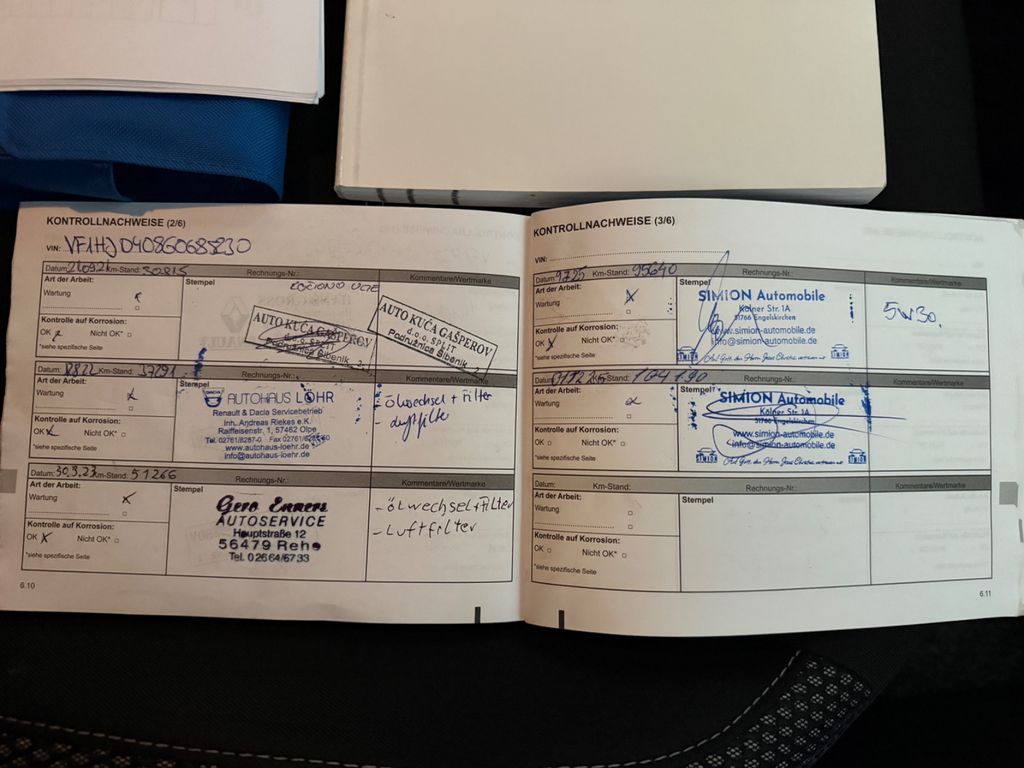 KONTROLLNACHWEISE (2/6)
VIN: VF1HJD40860685230
Datum: Km-Stand: 30815 Rechnungs-Nr.: Kommentare/Wertmarke
Art der Arbeit:
Wartung
Stempel
Kontrolle auf Korrosion:
OK Nicht OK*
*siehe spezifische Seite
AUTO KUĆA GAŠPEROV
d.o.o. SPLIT
Podružnica Šibenik
AUTO KUĆA GAŠPEROV
d.o.o. SPLIT
Podružnica Šibenik 2
Datum: Km-Stand: 37291 Rechnungs-Nr.: Kommentare/Wertmarke
Art der Arbeit:
Wartung
Stempel
Kontrolle auf Korrosion:
OK Nicht OK*
*siehe spezifische Seite
AUTOHAUS LÖHR
Renault & Dacia Servicebetrieb
Inh. Andreas Riekes e.K.
Raiffeisenstr. 1, 57462 Olpe
Tel. 02761/8287-0 Fax
www.autohaus-loehr.de
info@autohaus-loehr.de
- Ölwechsel + Filter
- Luftfilter
Datum: 30.3.23 Km-Stand: 51266 Rechnungs-Nr.: Kommentare/Wertmarke
Art der Arbeit:
Wartung
Stempel
Kontrolle auf Korrosion:
OK Nicht OK*
*siehe spezifische Seite
Gero Enners
AUTOSERVICE
Hauptstraße 12
56479 Rehe
Tel. 02664/6733
- Ölwechsel+Filter
- Luftfilter
6.10
KONTROLLNACHWEISE (3/6)
VIN:
Datum: 9.7.25 Km-Stand: 95640 Rechnungs-Nr.: Kommentare/Wertmarke
Art der Arbeit:
Wartung
Stempel
Kontrolle auf Korrosion:
OK Nicht OK*
*siehe spezifische Seite
SIMION Automobile
Kölner Str. 1A
51766 Engelskirchen
www.simion-automobile.de
info@simion-automobile.de
SIMION
5W30.
Datum: Km-Stand: 104190 Rechnungs-Nr.: Kommentare/Wertmarke
Art der Arbeit:
Wartung
Stempel
Kontrolle auf Korrosion:
OK Nicht OK*
*siehe spezifische Seite
SIMION Automobile
Kölner Str. 1A
51766 Engelskirchen
www.simion-automobile.de
info@simion-automobile.de
SIMION
Datum: Km-Stand: Rechnungs-Nr.: Kommentare/Wertmarke
Art der Arbeit:
Wartung
Stempel
Kontrolle auf Korrosion:
OK Nicht OK*
*siehe spezifische Seite
6.11